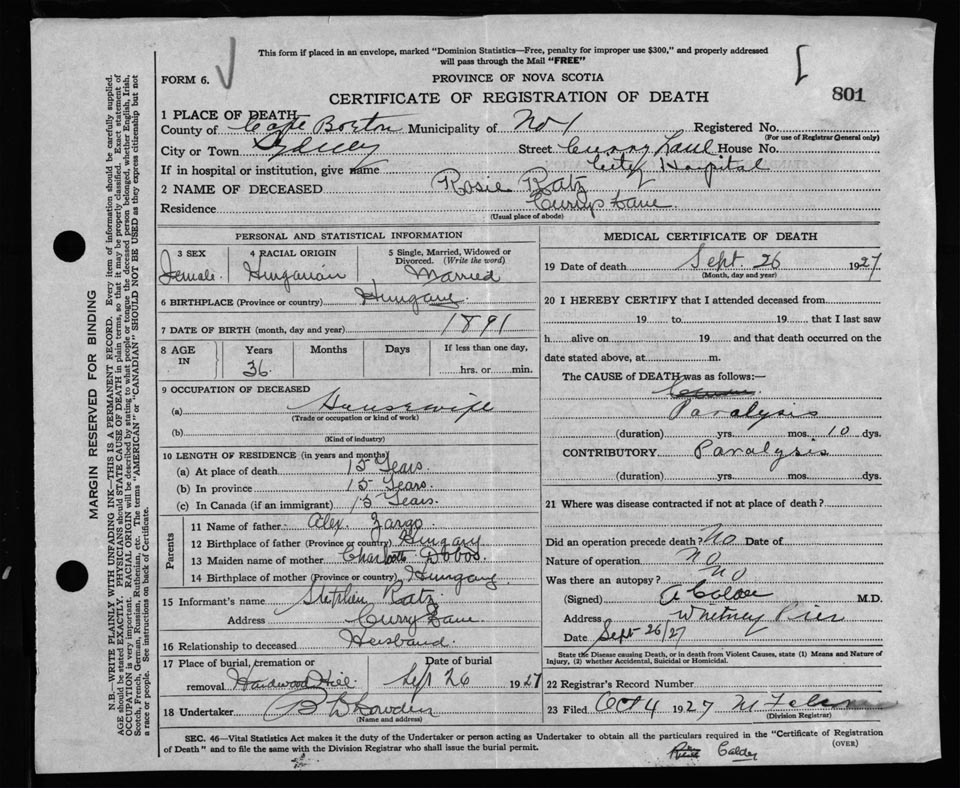 This form if placed in an envelope, marked "Dominion Statistics—Free, penalty for improper use $300," and properly addressed
will pass through the Mail "FREE"
FORM 6. PROVINCE OF NOVA SCOTIA
CERTIFICATE OF REGISTRATION OF DEATH 801
1 PLACE OF DEATH
County of Cape Breton Municipality of No 1 Registered No.
(For use of Registrar General only)
City or Town Sydney Street Curry Lane House No.
If in hospital or institution, give name City Hospital
2 NAME OF DECEASED Rosie Ratz
Residence Currys Lane
(Usual place of abode)
PERSONAL AND STATISTICAL INFORMATION
3 SEX 4 RACIAL ORIGIN 5 Single, Married, Widowed or
Divorced. (Write the word)
Female Hungarian Married
6 BIRTHPLACE (Province or country) Hungary
7 DATE OF BIRTH (month, day and year) 1891
8 AGE IN Years Months Days If less than one day,
36 hrs. or min.
9 OCCUPATION OF DECEASED
(a) Housewife
(Trade or occupation or kind of work)
(b)
(Kind of industry)
10 LENGTH OF RESIDENCE (in years and months)
(a) At place of death 15 Years.
(b) In province 15 Years.
(c) In Canada (if an immigrant) 15 Years.
Parents
11 Name of father Alex
12 Birthplace of father (Province or country) Hungary
13 Maiden name of mother
14 Birthplace of mother (Province or country) Hungary
15 Informant's name Stephen Ratz
Address Curry Lane
16 Relationship to deceased Husband
17 Place of burial, cremation or Date of burial
removal Hardwood Hill Sept 26 1927
18 Undertaker
(Name and address)
MEDICAL CERTIFICATE OF DEATH
19 Date of death Sept. 26 1927
(Month, day and year)
20 I HEREBY CERTIFY that I attended deceased from
19 to 19 that I last saw
h alive on 19 and that death occurred on the
date stated above, at m.
The CAUSE of DEATH was as follows:—
Paralysis
(duration) yrs. mos. 10 dys.
CONTRIBUTORY Paralysis
(duration) yrs. mos. dys.
21 Where was disease contracted if not at place of death?
Did an operation precede death? No Date of
Nature of operation No
Was there an autopsy? No
(Signed) A Calder M.D.
Address Whitney Pier
Date Sept 26/27
State the Disease causing Death, or in death from Violent Causes, state (1) Means and Nature of
Injury, (2) whether Accidental, Suicidal or Homicidal.
22 Registrar's Record Number
23 Filed Oct 4 1927
(Division Registrar)
SEC. 46—Vital Statistics Act makes it the duty of the Undertaker or person acting as Undertaker to obtain all the particulars required in the "Certificate of Registration
of Death" and to file the same with the Division Registrar who shall issue the burial permit. (OVER)
Calder
MARGIN RESERVED FOR BINDING
N.B.—WRITE PLAINLY WITH UNFADING INK—THIS IS A PERMANENT RECORD. Every item of information should be carefully supplied.
AGE should be stated EXACTLY. PHYSICIANS should STATE CAUSE OF DEATH in plain terms, so that it may be properly classified. Exact statement of
OCCUPATION is very important. RACIAL ORIGIN will be described by stating to what people or tongue the deceased person belonged, whether English, Irish,
Scotch, French, German, Russian, Ruthenian, etc. The terms "AMERICAN" or "CANADIAN" SHOULD NOT BE USED as they express citizenship but not
a race or people. See instructions on back of Certificate.